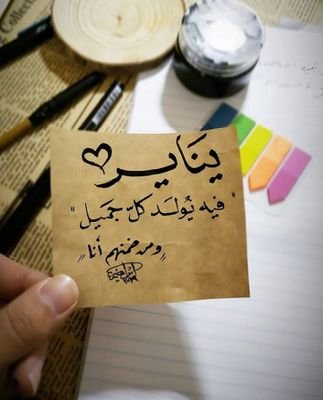 يَنَاير
"فيه يُولَد كلّ جَميَل"
"ومن ضمنهم أنا"